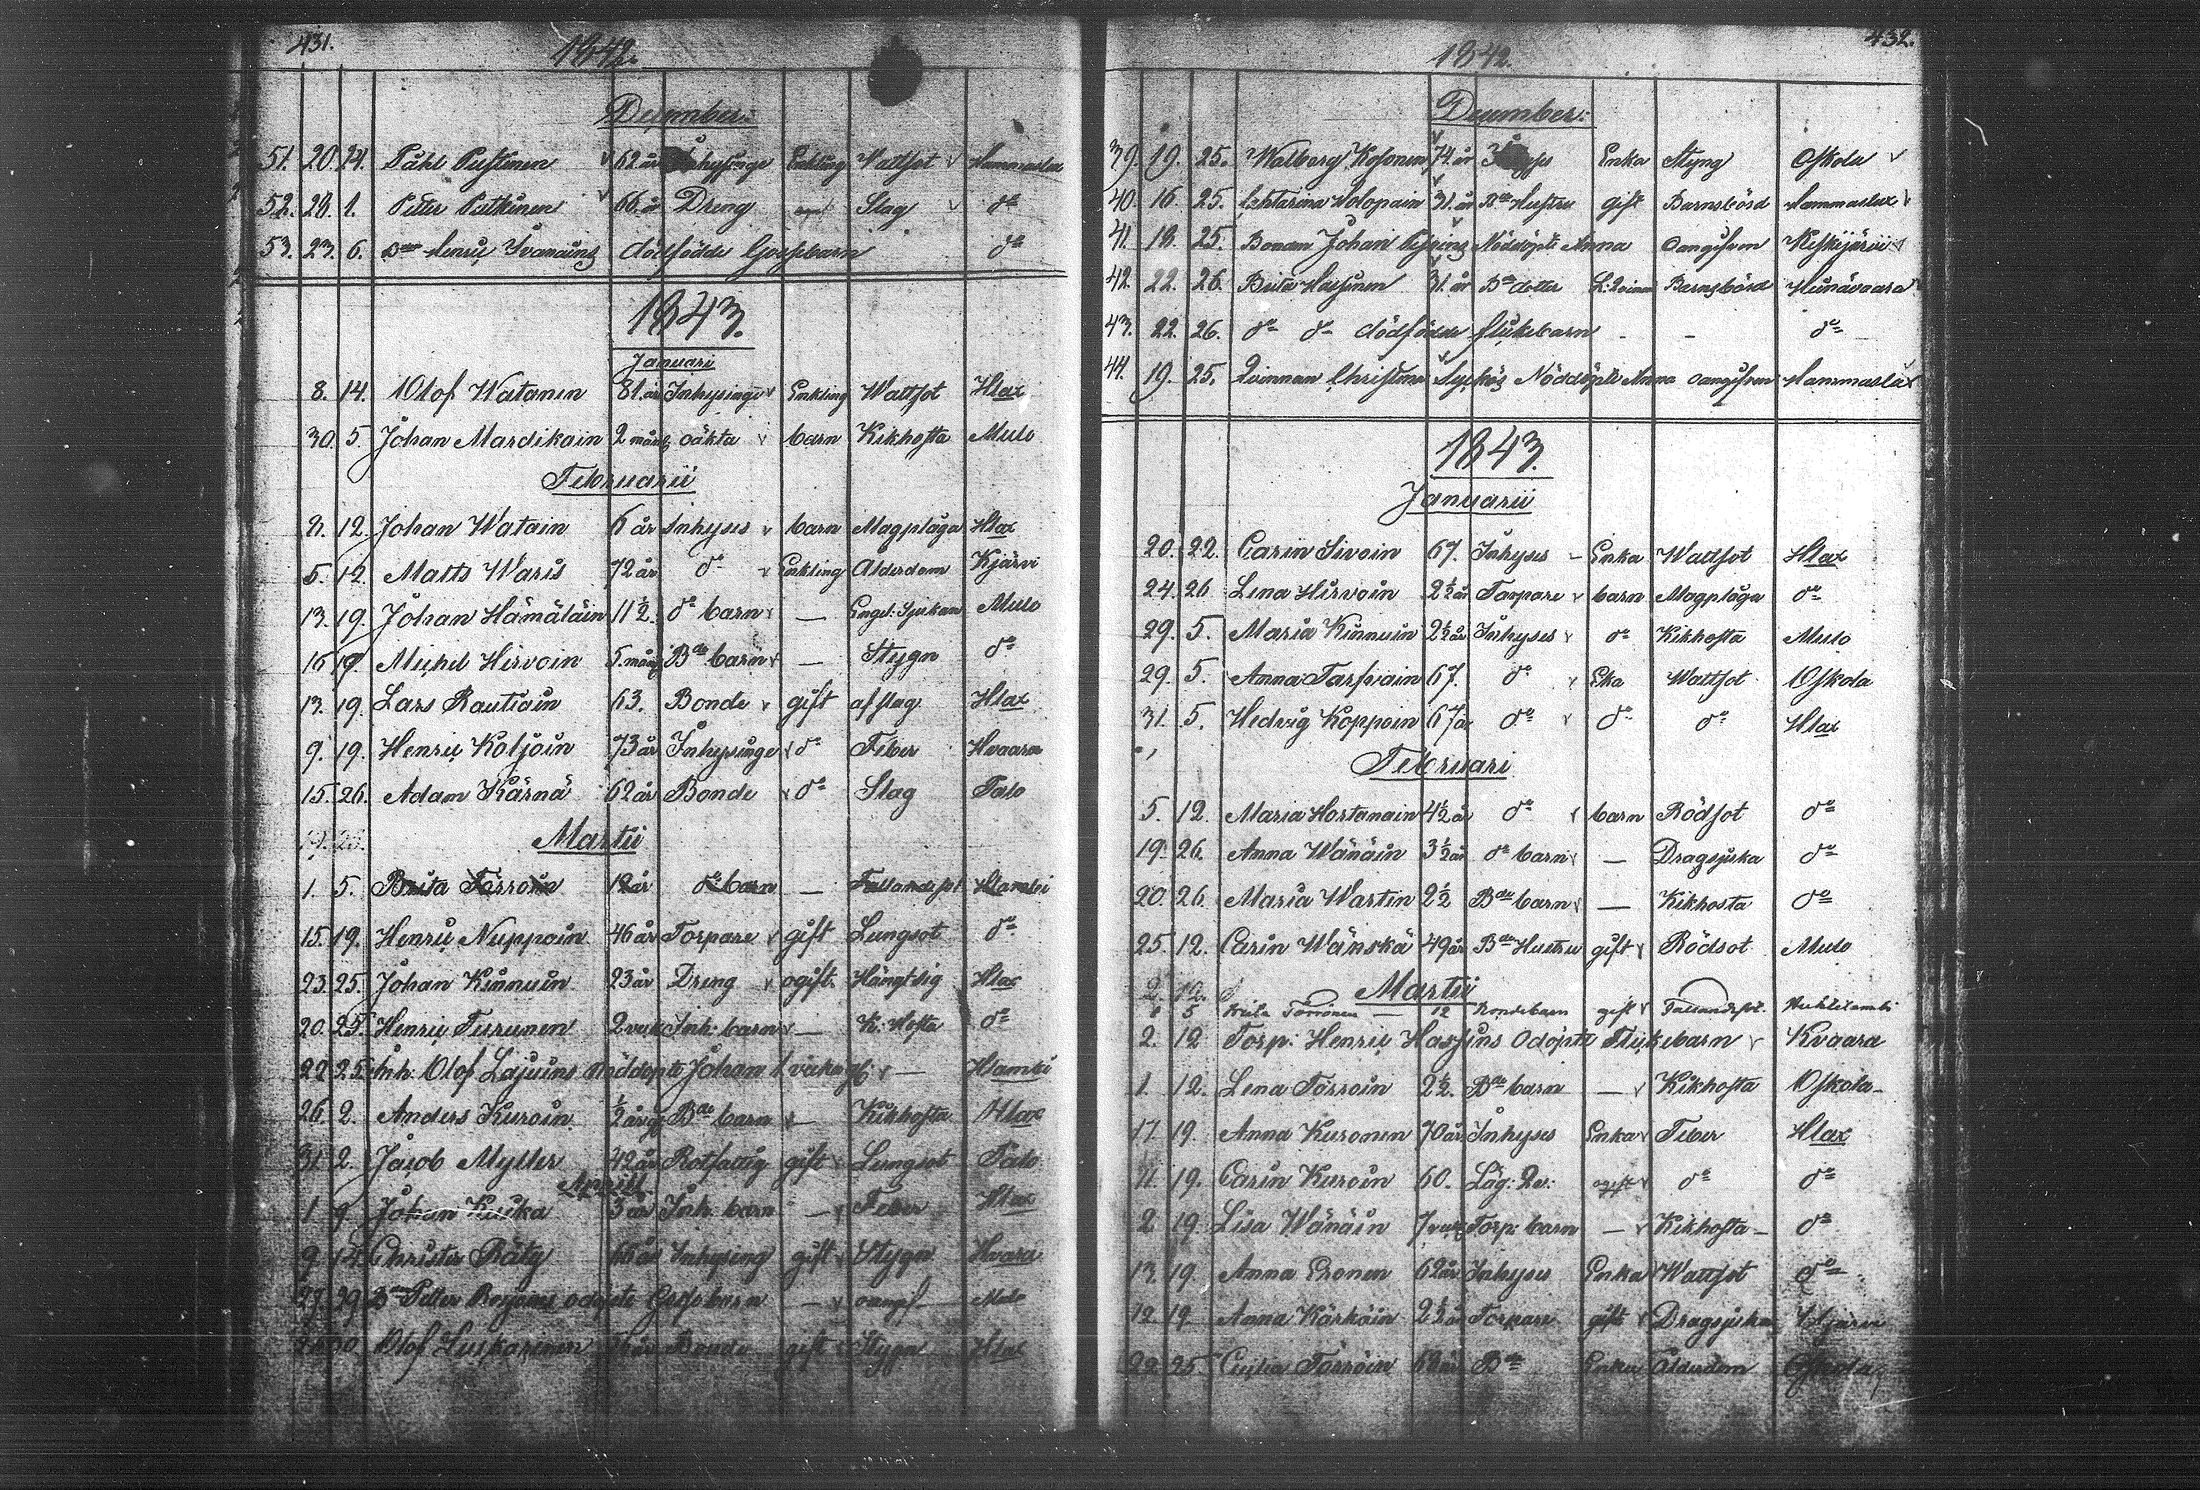 431.
1842.
December:
51. 20. 24. Påhl Pesonen 62 år Inhysinge Enkling Wattsot Hammaslax
52. 28. 1. Petter Patkinen 66. år Dreng Slag do
53. 23. 6. Henric Ivanains dödfödde Gossebarn do
1843.
Januari
8. 14. Olof Watanen 81. år Inhysinge Enkling Wattsot Hlax
30. 5. Johan Mardikain 2 mån oäkta barn Kikhosta Mulo
Februarii
2. 12. Johan Watain 6 år Inhyses barn Magplåga Hlax
5. 12. Matts Waris 72 år do Enkling Ålderdom Kjärvi
13. 19. Johan Hämäläin 11½. do barn — Engel: Sjukan Mulo
16 19. Michel Hirvoin 5. mån Bde barn — Stygn do
13. 19. Lars Rautiain 63. Bonde gift af slag Hlax
9. 19. Henric Koljoin 73 år Inhysinge do Feber Hvaara
15. 26. Adam Kärnä 62 år Bonde do Slag Talo
Martii
1. 5. Brita Torroin 12 år do barn — Fallandesot Hlambi
15. 19. Henric Nuppoin 46 år Torpare gift Lungsot do
23. 25. Johan Kinnuin 23 år Dreng ogift. Hängt sig Hlax
20. 25. Henric Turunen 2 vick Inh: barn — K: Hosta do
22. 25. Inh: Olof Lajuins nöddöpte Johan 1 vicka gl: — Hlambi
26. 2. Anders Kuroin ½ årig Bde barn — Kikhosta Hlax
31. 2. Jacob Myller 42 år Rotfattig gift Lungsot Talo
Aprill
1 9 Johan Kuikka 3 år Inh: barn — Feber Hlax
9 14. Christer Räty 66 år Inhysing gift Stygn Hvara
27. 29. Petter odöpte Gossebarn — oangif Mulo
30. Olof år Bonde gift Stygn Hlax
432.
1842.
December:
39. 19. 25. Walborg Kosonen 74. år Enka Styng Oskola
40. 16. 25. Cathtarina Wolopain 31. år Bde Hustru gift Barnsbörd Hammaslax
41. 18. 25. Bondn Johan Nöddöpte Anna oangifven Keskijärvi
42. 22. 26. Brita Hassinen 31. år Bde dotter L: Qvinna Barnsbörd Huinävaara
43. 22. 26. do do dödfödde flickebarn - - do
44. 19. 25. Qvinnan Christina Nöddöpte Anna oangifven Hammaslax
1843.
Januarii
20. 22. Carin Sivoin 67. Inhyses — Enka Wattsot Hlax
24. 26 Lena Hirvoin 2½ år Torpare barn Magplåga do
29. 5. Maria Kinnuin 2½ år Inhyses do Kikhosta Mulo
29. 5. Anna Tarvain 67. do Eka Wattsot Oskola
31. 5. Hedvig Koppoin 67 år do do do Hlax
Februari
5. 12. Maria Hortanain 4½ år do barn Rödsot do
19. 26. Anna Wänäin 3½ år do barn — Dragsjuka do
20. 26. Maria Wartin 2½ Bde barn — Kikhosta do
25. 12. Carin Wänskä 49 år Bde Hustru gift Rödsot Mulo
Martii
1 5 Torrönen — 12 Bondebarn gift Fallandesot. Huhtilambi
2. 12 Torp: Henric Hassins Odöpte Flickebarn Kvaara
1. 12. Lena Torroin 2½. Bde barn — Kikhosta Oskola
17. 19. Anna Kuronen 70 år Inhyses Enka Feber Hlax
11. 19. Carin Kuroin 60. Läg: Qv: ogift do do
2 19. Lisa Wänäin 7 vick Torp: barn — Kikhosta — do
13. 19. Anna Eronen 62 år Inhyses Enka Wattsot do
12. 19. Anna Kärkäin 2½ år Torpare gift Dragsjuka
22 25 Cecilia Torroin 68 år Bde Enka Ålderdom Oskola